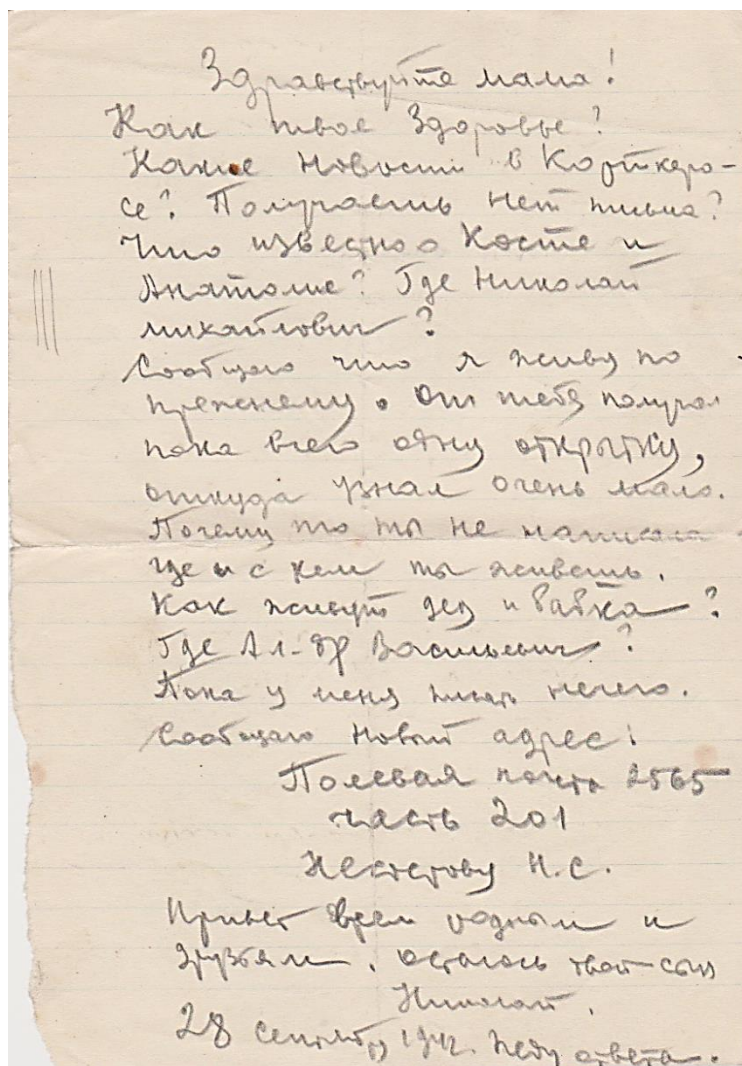 Здравствуйте мама!
Как твое Здоровье?
Какие новости в Корткеро-
се? Получаешь нет письма?
Что известно о Косте и
Анатолие? Где Николай
Михайлович?
Сообщаю что я живу по
прежнему. От тебя получил
пока всего одну открытку,
откуда узнал очень мало.
Почему то ты не написала
где и с кем ты живешь.
Как живут дед и бабка?
Где Ал-др Васильевич?
Пока у меня писать нечего.
Сообщаю новый адрес:
Полевая почта 2565
часть 201
Н.С.
Привет всем родным и
друзьям. Остаюсь твой сын
Николай.
28 сентября 1942. Жду ответа.